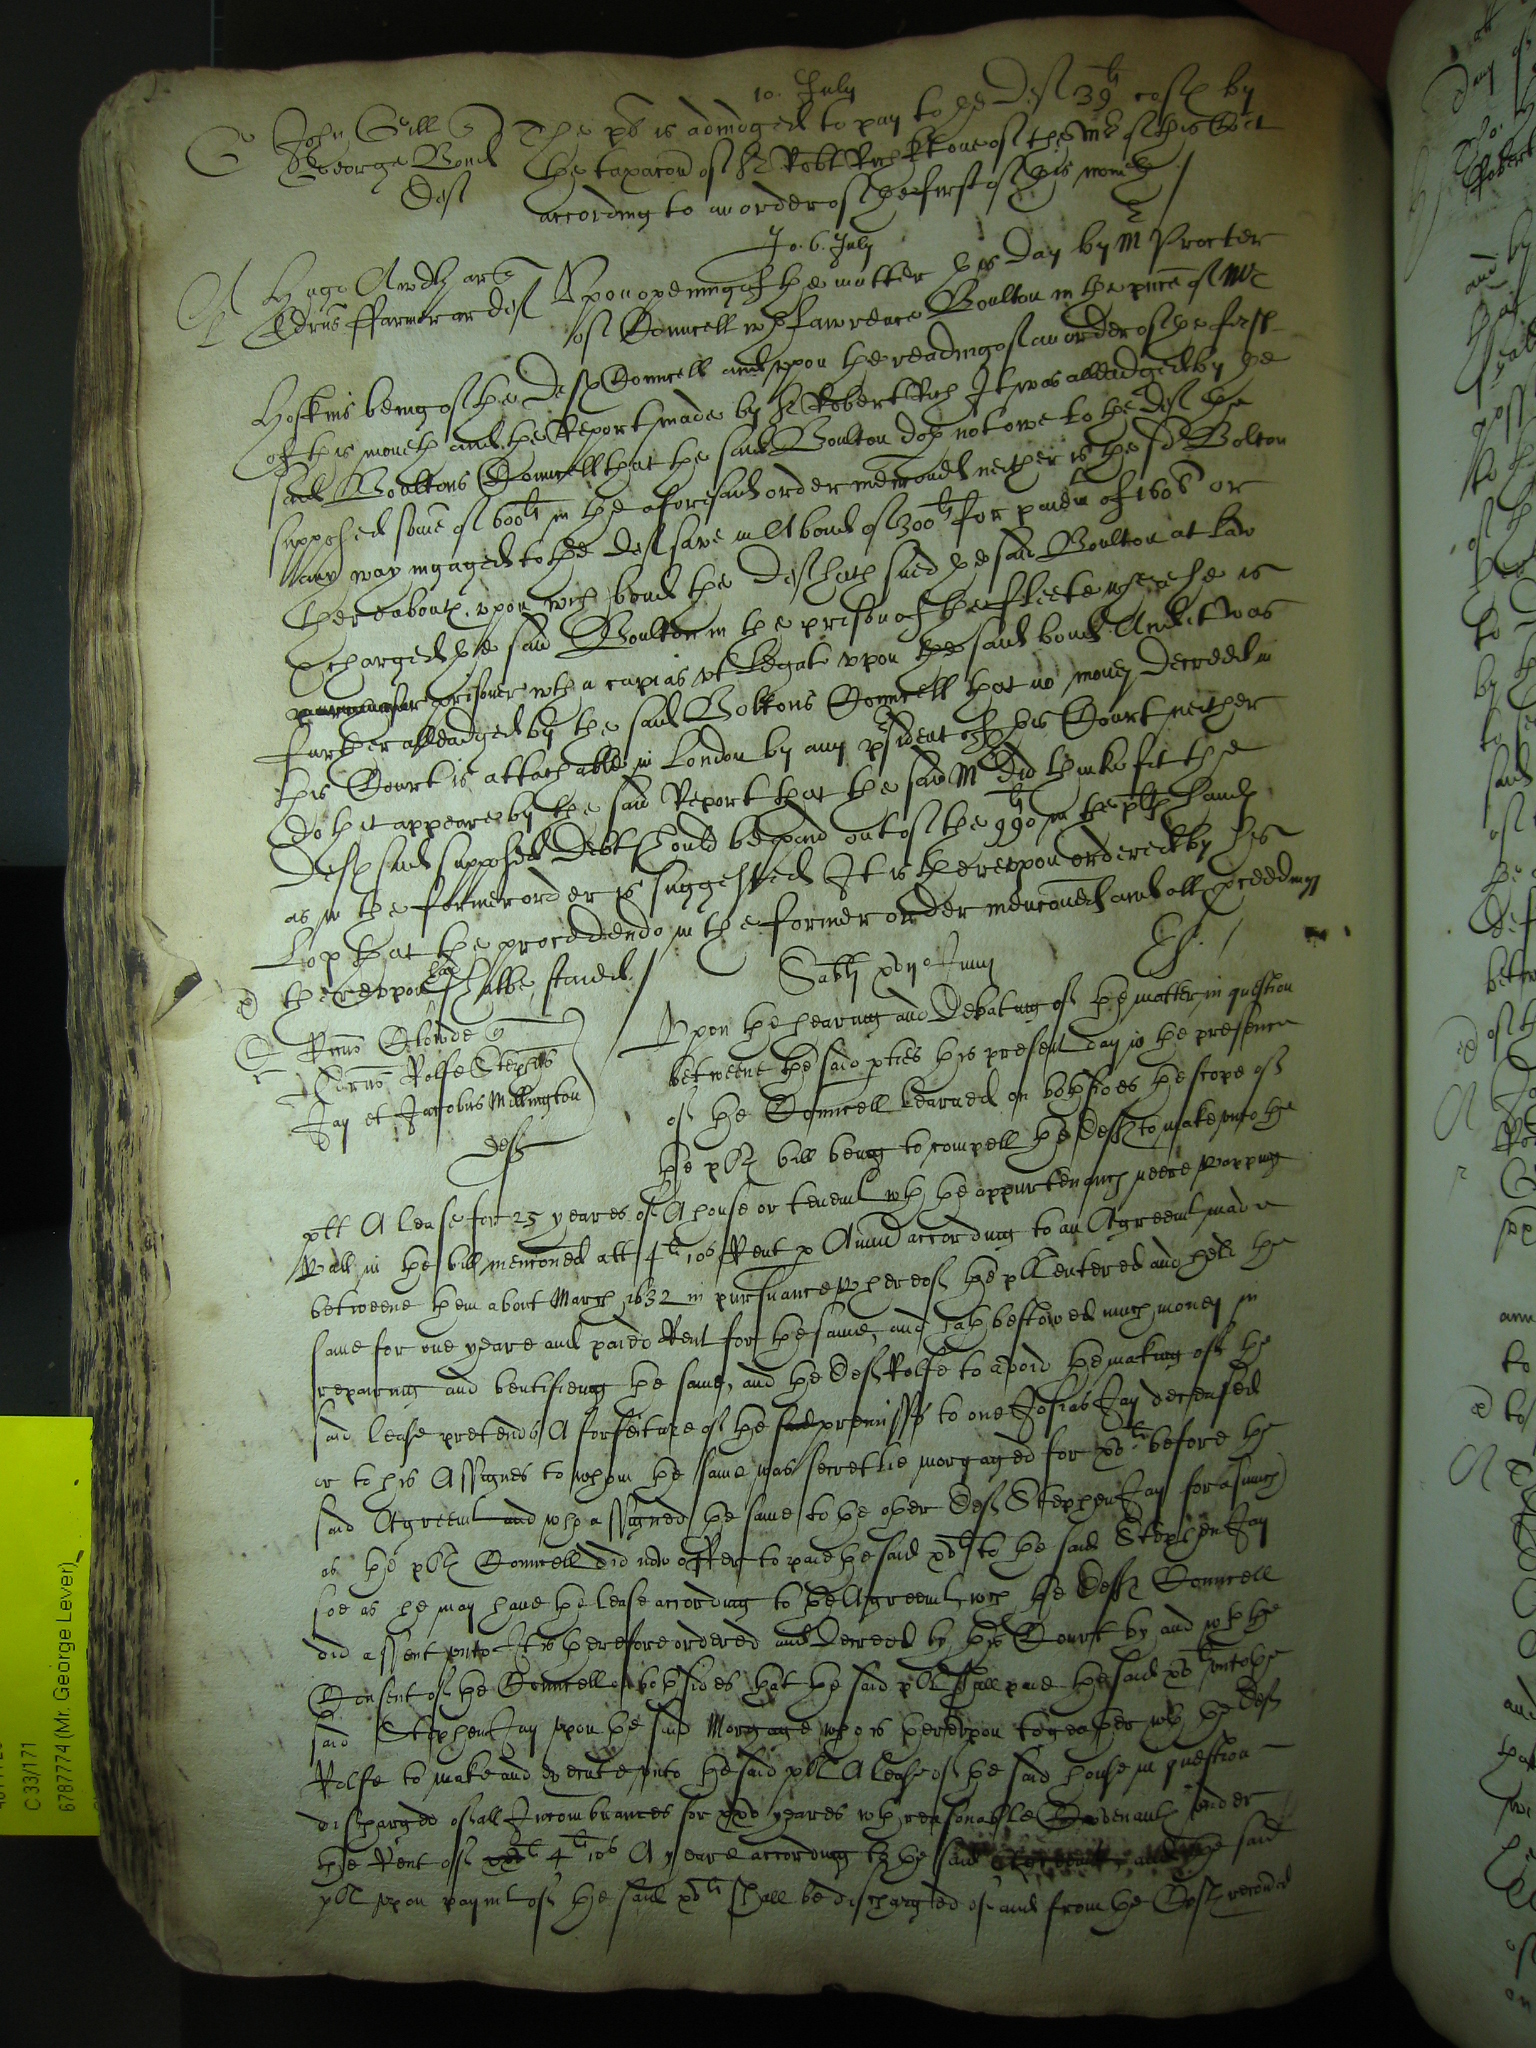 10. July
John Gell q
George Bond
Def
The plt is adiudged to pay to the Def 39li costs by
the taxacon of Sr Robt Rich kt one of the Mrs of this Court
according to an order of the first of this moneth /
Jo. 6. July
Hugo Awdley ar q
Edrus ffarmer ar def
Upon opening of the matter this Day by Mr Procter
of Councell wth Lawrence Boulton in the pnce of Mr
Hoskins being of the Defts Councell and upon the reading of an order of the first
of this moneth and the Report made by Sr Robert Rich It was alleadged by the
said Boultons Councell that the said Boulton doth not owe to the Def the
supposed some of 600li in the aforesaid order mencioned neither is the sd Bolton
any way ingaged to the Def save in A bond of 300li for paiemt of 160li or
thereabouts upon wch bond the Def hath sued the said Boulton at Law
& charged the said Boulton in the prison of the ffleete where he is
prisoner wth a capias utlegat upon the said bond And it was
further alleadged by the said Boltons Councell that no money Decreed in
this Court is attachable in London by any president of this Court neither
doth it appeare by the said Report that the said Mr did thinke fit the
Defts said supposed Debt should be paid out of the 990li in the plts hands
as in the former order is suggested It is thereupon ordered by his
Lop that the procedendo in the former order mencioned and all proceedings
thereupon had shalbe staied /
Sabti xvij o Junij
Ricus Clowde q
Edrus Rolfe Stephus
Jay et Jacobus Millington
deff
Upon the hearing and Debating of the matter in question
betweene the said pties this present day in the presence
of the Councell Learned on both sides the scope of
the plts bill being to compell the Defts to make unto the
plt A lease for 25 yeares of A house or tenemt wth the appurtenances neere Wapping
Wall in the bill mencioned att 4li 10s Rent p Annu according to an Agreemt made
betweene them about March 1632 in pursuance whereof the plt entered and held the
same for one yeare and paied Rent for the same, and hath bestowed much money in
repairing and beutifieing the same, and the Deft Rolfe to avoid the making of the
said lease pretends A forfeiture of the said premisses to one Josias Jay deceased
or to his Assignes to whom the same was secretlie morgaged for xvli before the
said Agreemt and who assigned the same to the other Deft Stephen Jay forasmuch
as the plts Councell did now offer to paie the said xvli to the said Stephen Jay
soe as he may have the lease according to the Agreemt wch the Defts Councell
did assent unto It is therefore ordered and Decreed by this Court by and wth the
Consent of the Councell of both sides that the said plt shall paie the said xvli unto the
said Stephen Jay upon the said Morgage who is thereupon togeather wth the Deft
Rolfe to make and execute unto the said plt A lease of the said house in question
discharged of all Incombrances for xxv yeares wth reasonable Covenants under
the Rent of 4li 10s A yeare according to the said the said
plt upon paymt of the said xvli shall be discharged of and from the
C 33/171
6787774 (Mr. George Lever)